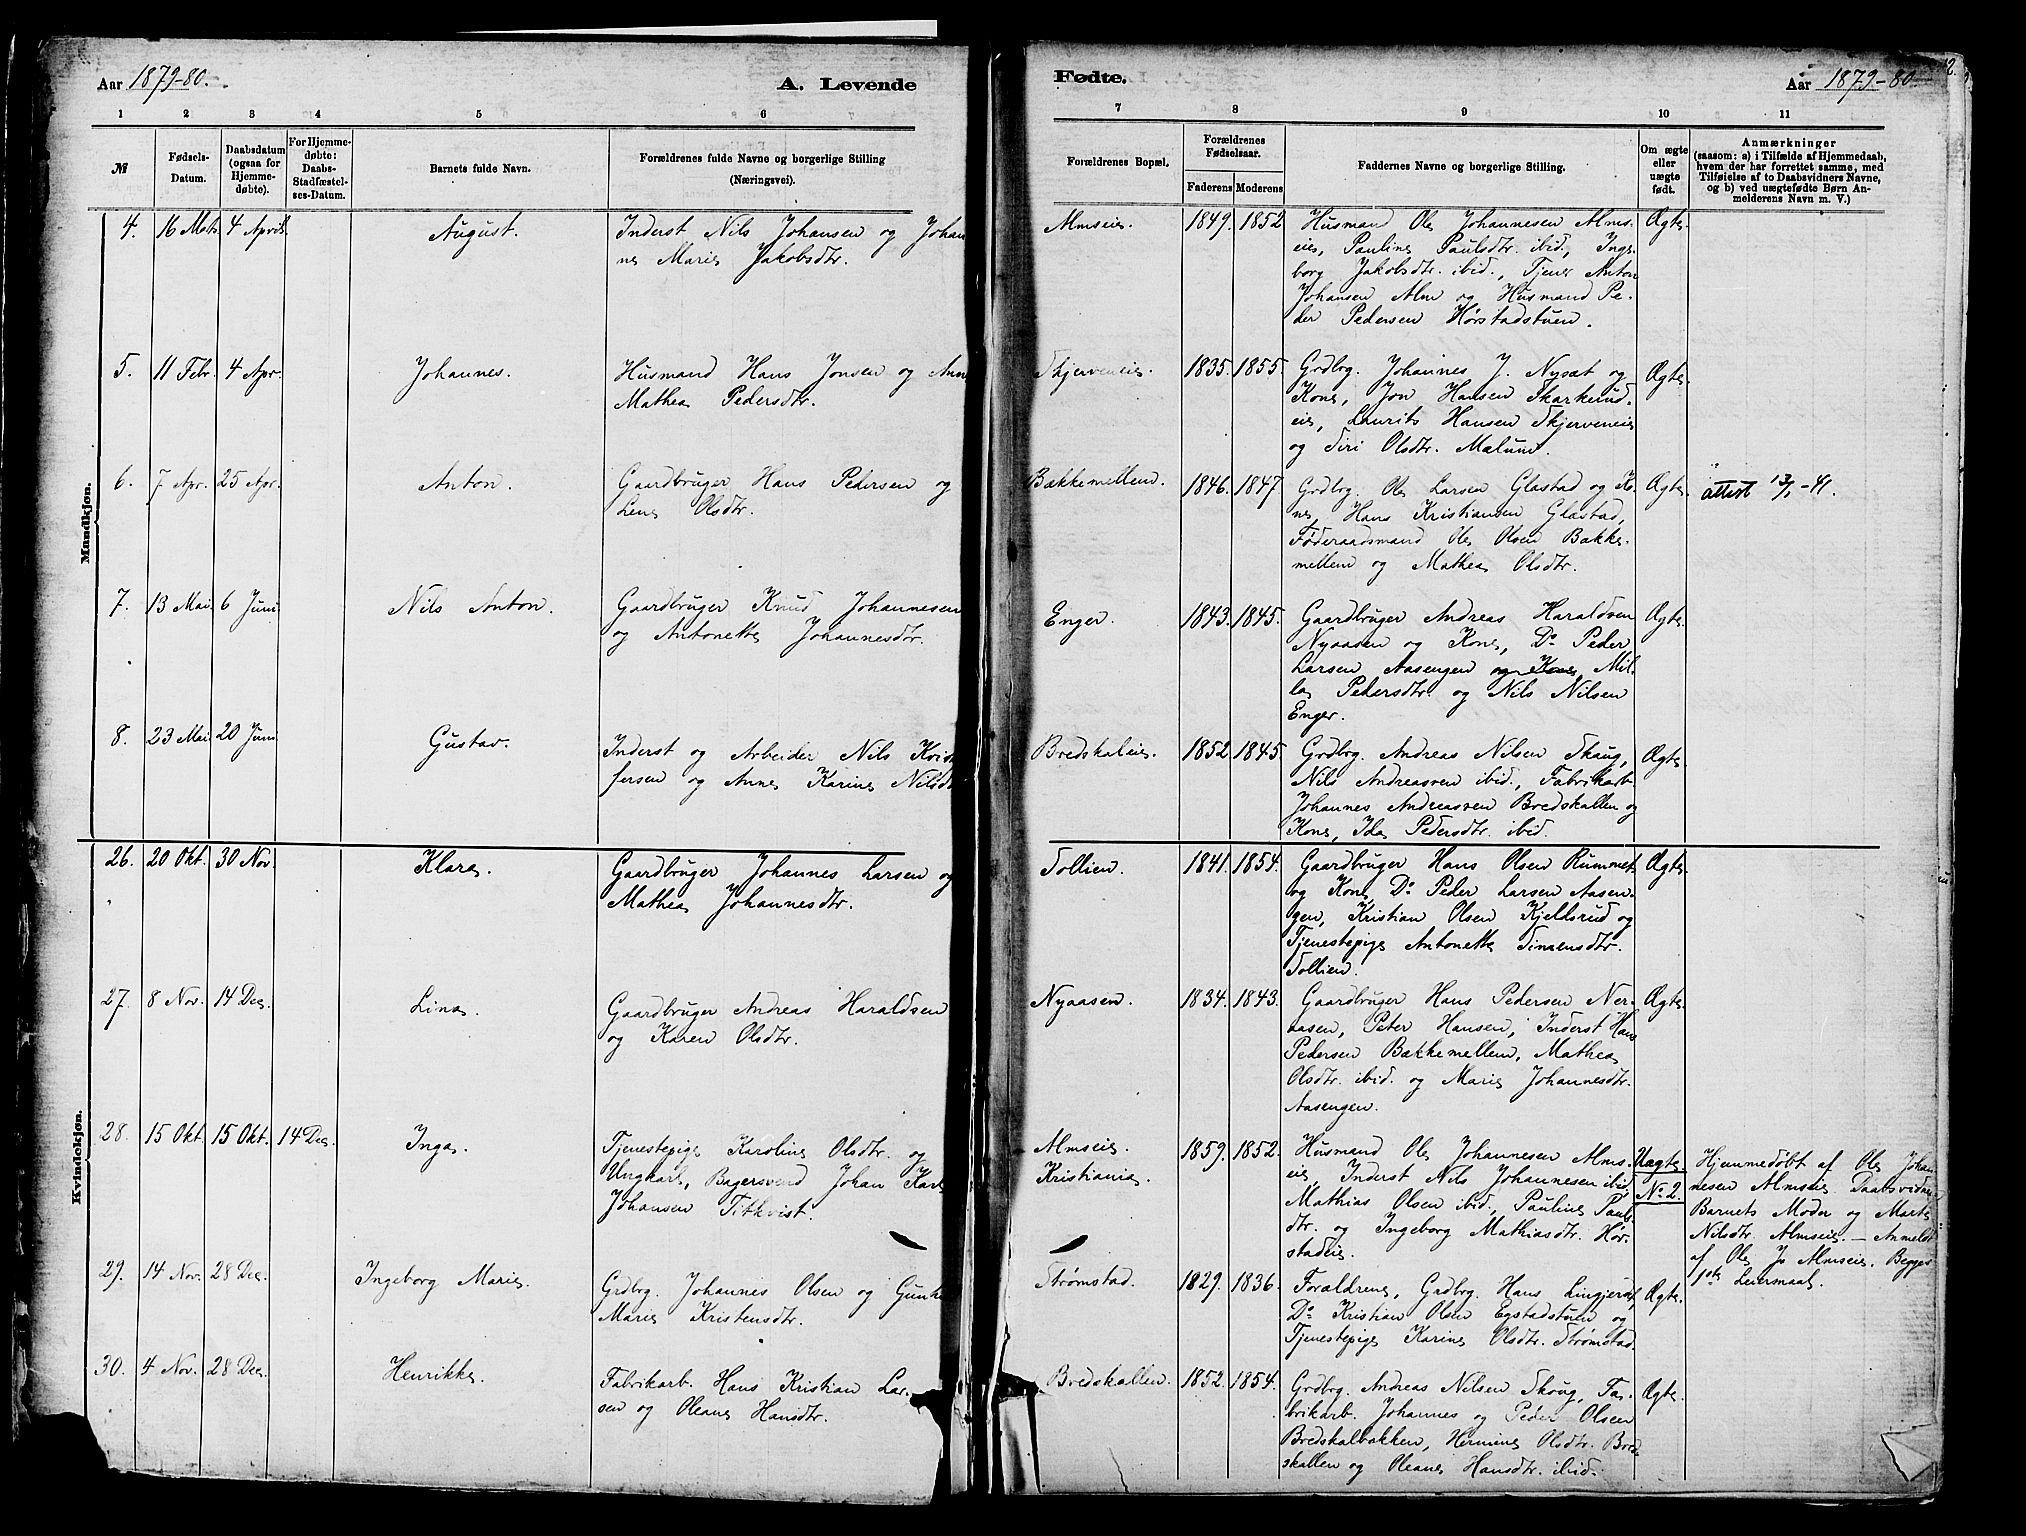 Aar 1879-80.
A. Levende
1 2 3 4 5 6
№
Fødsels-
Datum.
Daabsdatum
(ogsaa for
Hjemme-
døbte).
For Hjemme-
døbte:
Daabs-
Stadfæstel-
ses-Datum.
Barnets fulde Navn.
Forældrenes fulde Navne og borgerlige Stilling
(Næringsvei).
Mandkjøn.
4. 16 Mts. 4 April. August. Inderst Nils Johansen og Johan
ne Marie Jakobsdtr.
5. 11 Febr. 4 Apr. Johannes. Husmand Hans Jonsen og Anne
Mathea Pedersdtr.
6. 7 Apr. 25 Apr. Anton. Gaardbruger Hans Pedersen og
Lene Olsdtr.
7. 13 Mai. 6 Juni Nils Anton. Gaardbruger Knud Johannesen
og Antonette Johannesdtr.
8. 23 Mai. 20 Juni Gustav. Inderst og Arbeider Nils Krist
fersen og Anne Karine Nilsdt
Kvindekjøn.
26. 20 Okt. 30 Nov. Klara. Gaardbruger Johannes Larsen og
Mathea Johannesdtr.
27. 8 Nov. 14 Dec. Lina. Gaardbruger Andreas Haraldsen
og Karen Olsdtr.
28. 15 Okt. 15 Okt. 14 Dec. Inga. Tjenestepige Karoline Olsdtr. og
Ungkarl, Bagersvend Johan Karl
Johansen Titkvist.
29. 14 Nov. 28 Dec. Ingeborg Marie. Grdbrg. Johannes Olsen og Gunhi
Marie Kristensdtr.
30. 4 Nov. 28 Dec. Henrikke. Fabrikarb. Hans Kristian Lar-
sen og Oleane Hansdtr.
Fødte.
Aar 1879-80
2.
7 8 9 10 11
Forældrenes Bopæl.
Forældrenes
Fødselsaar.
Faderens Moderens
Faddernes Navne og borgerlige Stilling.
Om ægte
eller
uægte
født.
Anmærkninger
(saasom: a) i Tilfælde af Hjemmedaab,
hvem der har forrettet samme, med
Tilføielse af to Daabsvidners Navne,
og b) ved uægtefødte Børn An-
melderens Navn m. V.)
Almseie. 1849. 1852 Husmand Ole Johannesen Alms- Ægte.
eie, Pauline Paulsdtr. ibid, Inge-
borg Jakobsdtr. ibid., Tjener Anton
Johansen Alm og Husmand Pe-
der Pedersen Hørstadstuen.
Skjerveneie. 1835. 1855. Grdbrg. Johannes J. Nysæt og Ægte.
Kone, Jon Hansen Skarkerud-
eie, Laurits Hansen Skjerveneie
og Siri Olsdtr. Mælum.
Bækkemellem. 1846. 1847 Grdbrg. Ole Larsen Glæstad og Ko- Ægte. attest 13/1-41.
ne, Hans Kristiansen Glæstad,
Føderaadsmand Ole Olsen Bække-
mellem og Mathea Olsdtr.
Enger. 1843. 1845. Gaardbruger Andreas Haraldsen Ægte.
Nyaasen og Kone, Do Peder
Larsen Aasengen og Kone, Mil-
la Pedersdtr. og Nils Nilsen
Enger.
Bredskaleie. 1852. 1845. Grdbrg. Andreas Nilsen Skaug, Ægte.
Nils Andreassen ibid., Fabrikarb.
Johannes Andreassen Bredskallen og
Kone, Ida Pedersdtr. ibid.
Sollien. 1841. 1854. Gaardbruger Hans Olsen Rummet Ægte.
og Kone, Do Peder Larsen Aasen-
gen, Kristian Olsen Kjeldsrud og
Tjenestepige Antonette Simensdtr.
Sollien.
Nyaasen. 1834. 1843. Gaardbruger Hans Pedersen Ner- Ægte.
aasen, Peter Hansen, Inderst Hans
Pedersen Bækkemellem, Mathea
Olsdtr. ibid. og Marie Johannesdtr.
Aasengen.
Almseie. 1859. 1852. Husmand Ole Johannesen Alms- Uægte. Hjemmedøbt af Ole Johan-
Kristiania. eie, Inderst Nils Johannesen ibid, No 2. nesen Almseie. Daabsvidner
Mathias Olsen ibid, Pauline Pauls- Barnets Moder og Marte
dtr. og Ingeborg Mathiasdtr. Hør- Nilsdtr. Almseie. — Anmeldt
stadeie. af Ole Js Almseie. Begges
1ste Leiermaal.
Strømstad. 1829. 1836. Forældrene, Grdbrg. Hans Lingjerdet, Ægte.
Do Kristian Olsen Egstadstuen og
Tjenestepige Karine Olsdtr. Strømstad.
Bredskallen. 1852. 1854. Grdbrg. Andreas Nilsen Skoug, Fa- Ægte.
brikarb. Johannes og Peder Olsen
Bredskalbakken, Hermine Olsdtr. Bred-
skallen og Oleane Hansdtr. ibid.